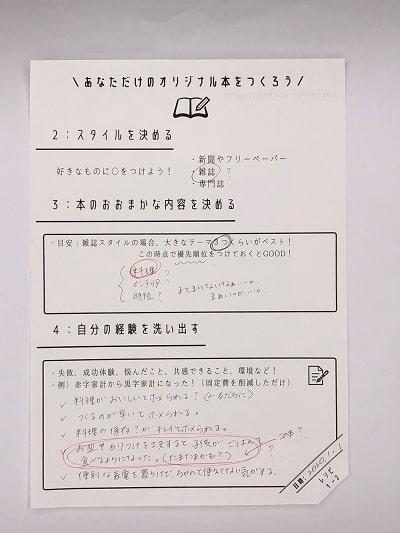 \あなただけのオリジナル本をつくろう/
2:スタイルを決める
・新聞やフリーペーパー
好きなものに○をつけよう! ・雑誌 ?
・専門誌
3:本のおおまかな内容を決める
・目安:雑誌スタイルの場合、大きなテーマ3つくらいがベスト!
この時点で優先順位をつけておくとGOOD!
料理 ?
インテリア ?
時短 ?
4:自分の経験を洗い出す
・失敗、成功体験、悩んだこと、共感できること、環境など!
・例)赤字家計から黒字家計になった!(固定費を削減しただけ)
✓ 料理がおいしいとホメられる?(←友だちに)
✓ つくるのが早いとホメられる。
✓ 料理の保存?がキレイとホメられる。
✓ お皿や盛りつけを工夫すると 子供が ごはん
食べるようになった。(たまたまかも?)
日時:2020.1.1
レシピ
1-2